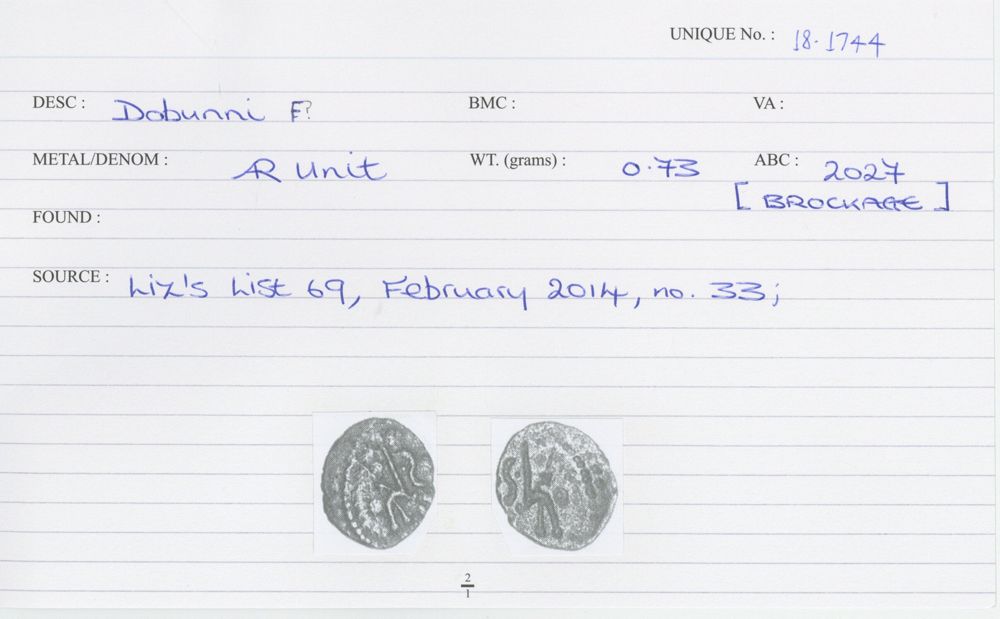 UNIQUE No. : 18.1744
DESC : Dobunni F? BMC : VA :
METAL/DENOM : AR Unit WT. (grams) : 0.73 ABC : 2027
[BROCKAGE]
FOUND :
SOURCE : Liz's List 69, February 2014, no. 33;
2
1